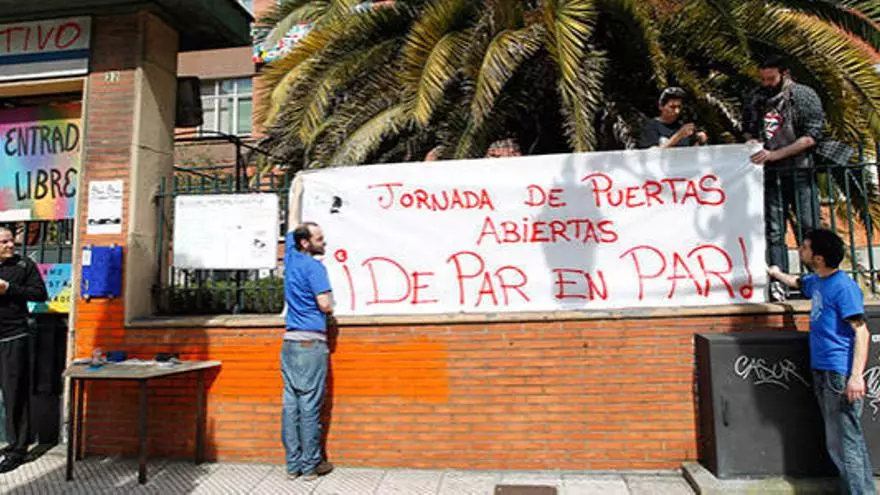 TIVO
32
ENTRAD
LIBRE
JORNADA DE PUERTAS
ABIERTAS
¡DE PAR EN PAR PAR!
CASUR